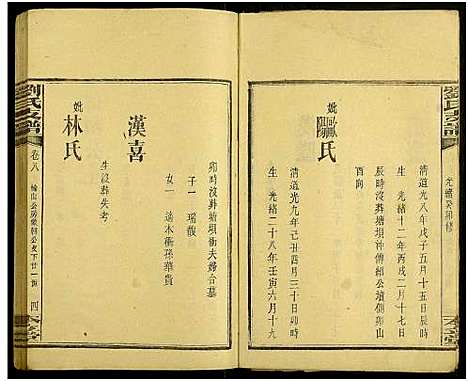 劉氏支譜
光緒癸卯修
清道光八年戊子五月十五日辰時
生 光緒十二年丙戌二月十七日
辰時沒葬塘垻沖傅組公墳側卯山
酉向
妣歐陽氏
清道光九年己丑四月三十日卯時
生 光緒二十八年壬寅六月十九
卯時沒葬塘垻衝夫婦合墓
子一 瑞馥
女一 適木衝孫華貴
漢喜
生沒葬失考
妣林氏
劉氏支譜
卷八
公房榮朝公支下廿一世
四